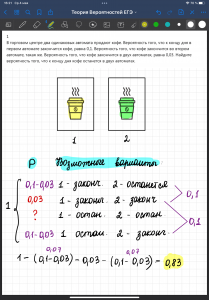 Теория Вероятностей ЕГЭ
1.
В торговом центре два одинаковых автомата продают кофе. Вероятность того, что к концу дня в
первом автомате закончится кофе, равна 0,1. Вероятность того, что кофе закончится во втором
автомате, такая же. Вероятность того, что кофе закончится в двух автоматах, равна 0,03. Найдите
вероятность того, что к концу дня кофе останется в двух автоматах.
1 2
P Возможные варианты
0,1-0,03 1 - законч. 2 - останется
0,03 1 - законч. 2 - законч.
0,1
1
? 1 - остан. 2 - остан.
0,1
0,1-0,03 1 остан. 2 - законч.
0,07 0,07
1 - (0,1-0,03) - 0,03 - (0,1-0,03) = 0,83